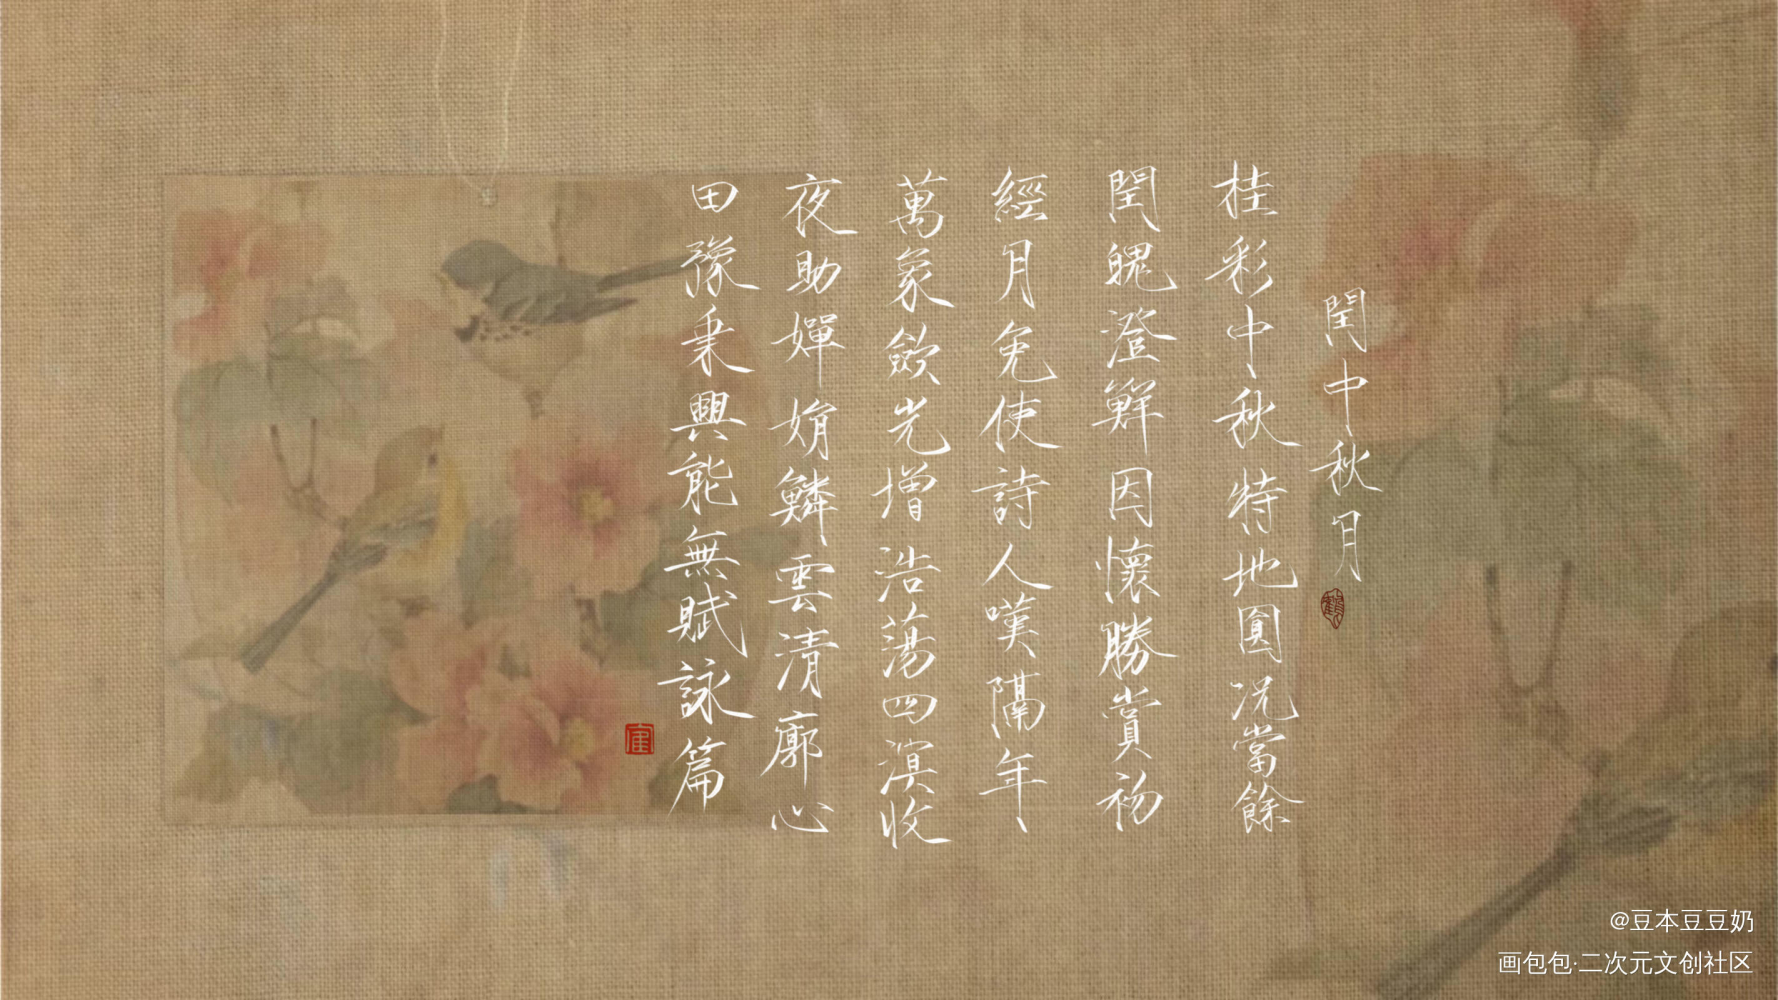 閏中秋月
桂彩中秋特地圓況當餘
閏魄澄鮮因懷勝賞初
經月免使詩人嘆隔年
萬象斂光增浩蕩四溟收
夜助嬋娟鱗雲清廓心
田豫乘興能無賦詠篇
@豆本豆豆奶
画包包·二次元文创社区